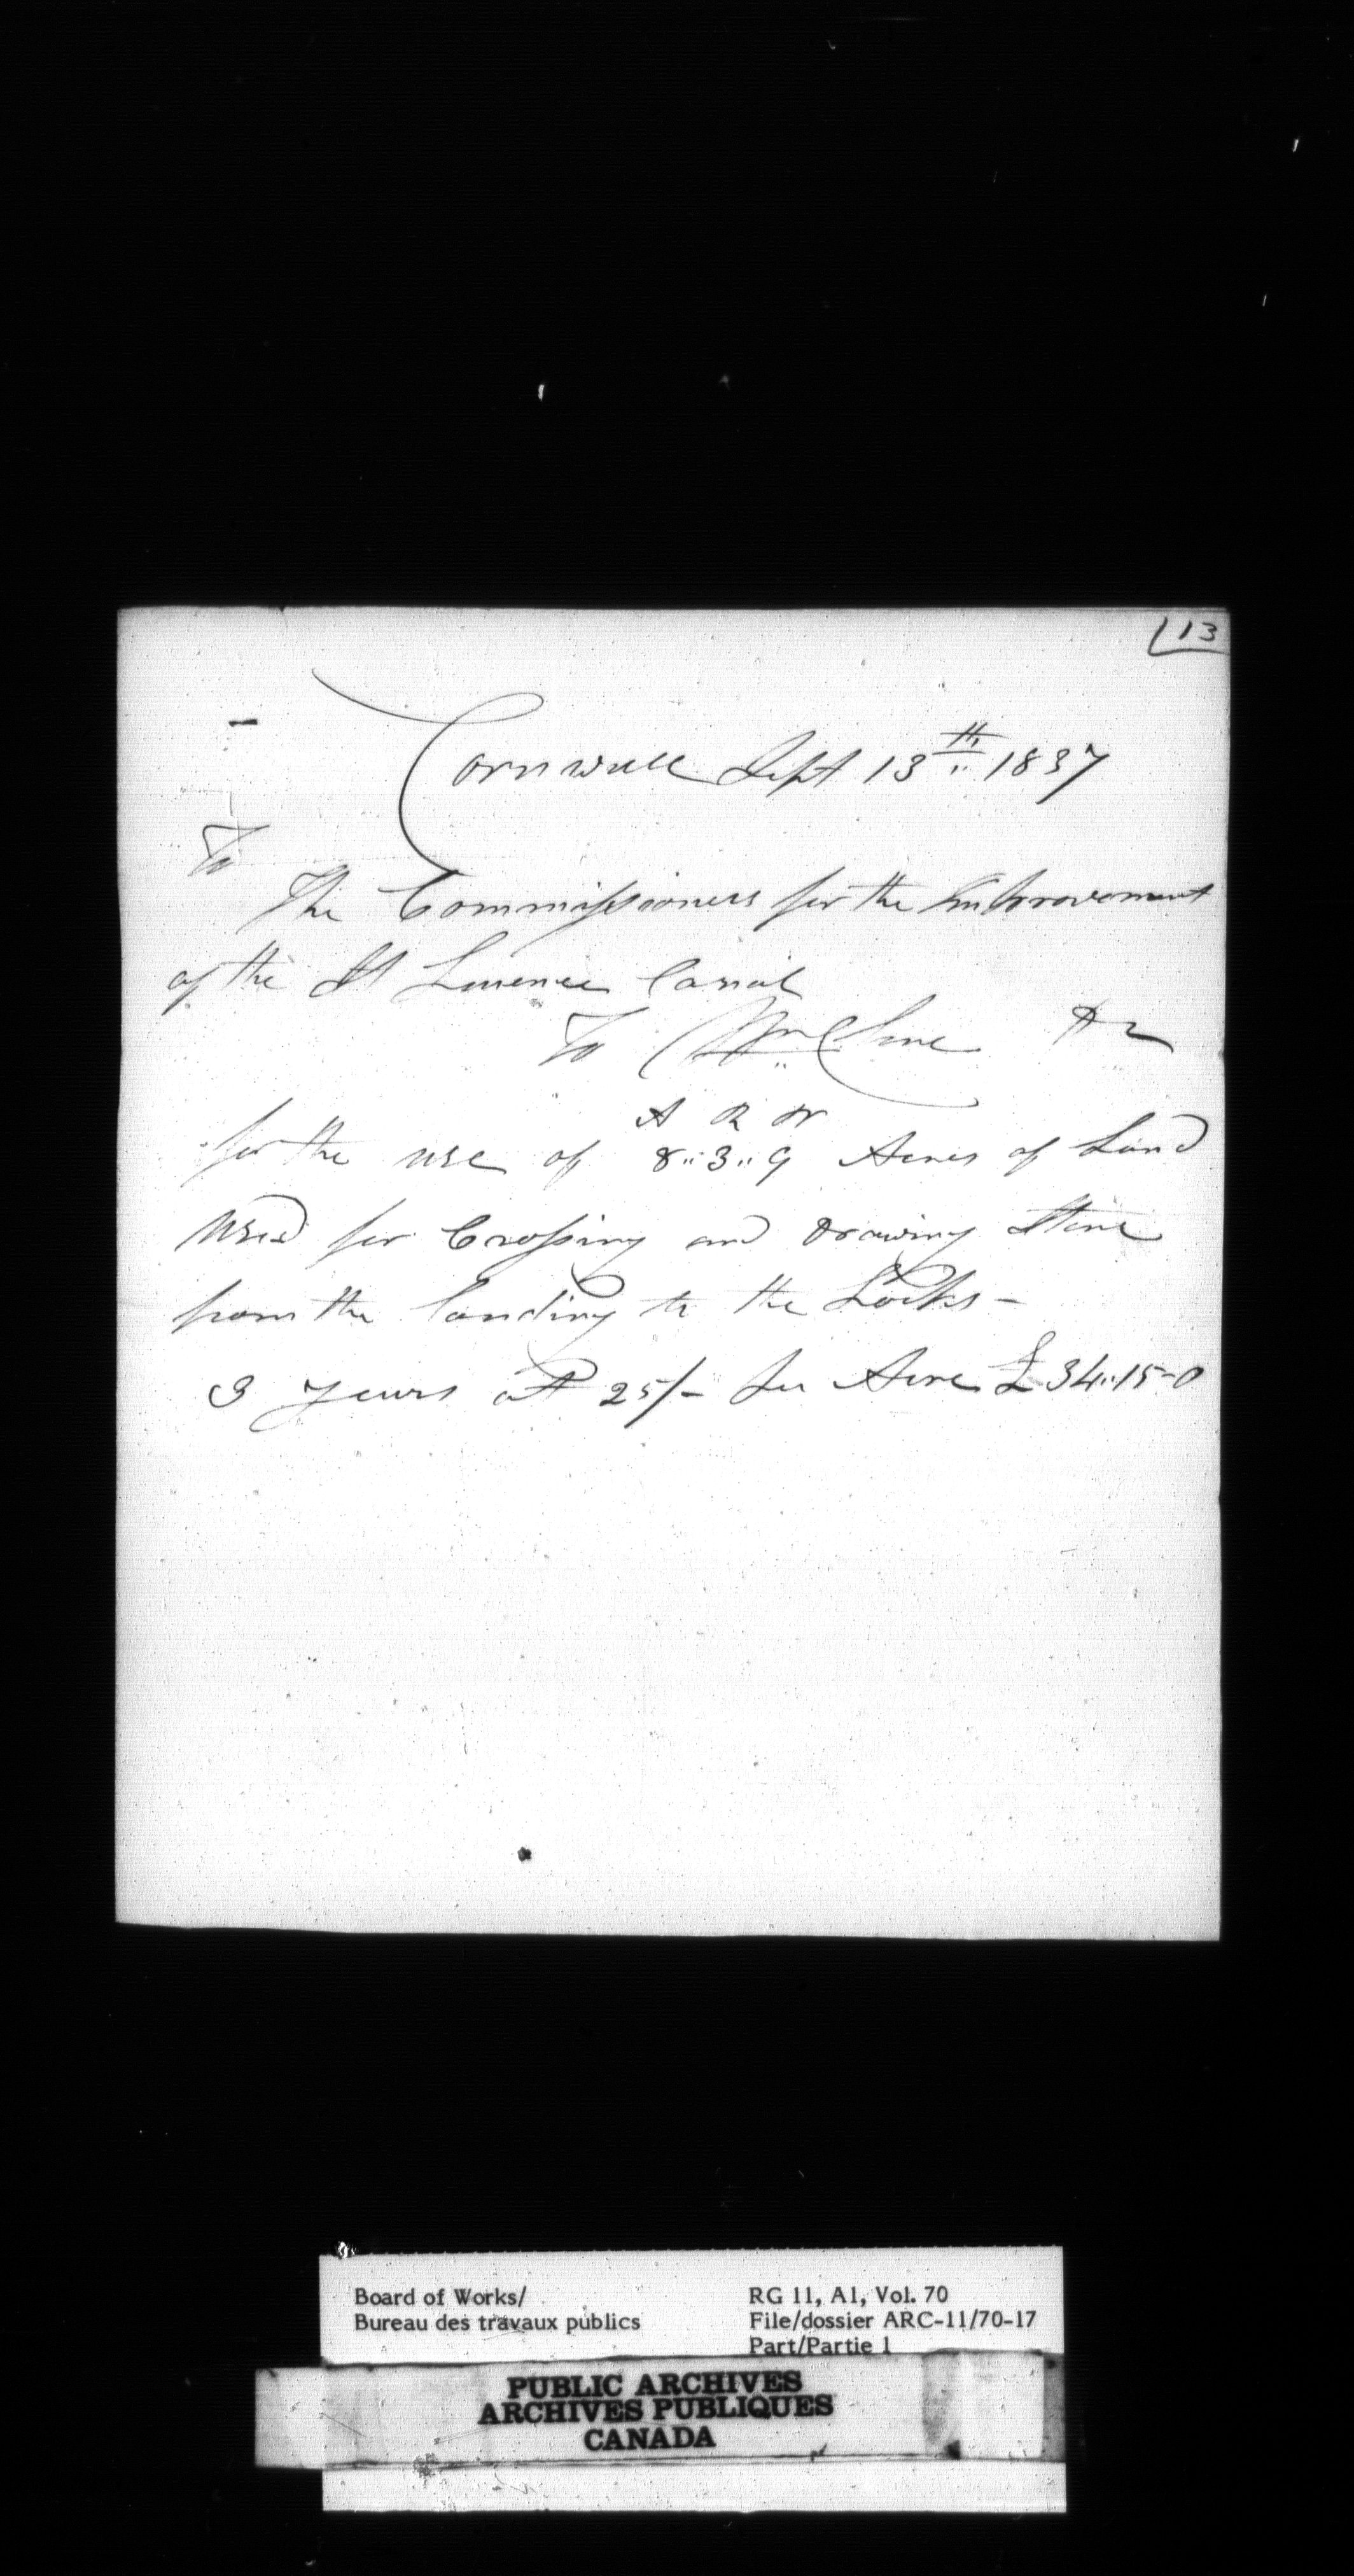 13
Cornwall Sept 13th 1837
To
The Commissioners for the Improvement
of the St Lawrence Canal
To Wm Cline Dr
A R
for the use of 8 " 3 " 9 Acres of Land
used for Crossing and Drawing Stone
from the landing to the Locks -
3 years at 25/- per Acre £34 " 15 - 0
Board of Works/
Bureau des travaux publics
RG 11, A1, Vol. 70
File/dossier ARC-11/70-17
Part/Partie 1
PUBLIC ARCHIVES
ARCHIVES PUBLIQUES
CANADA